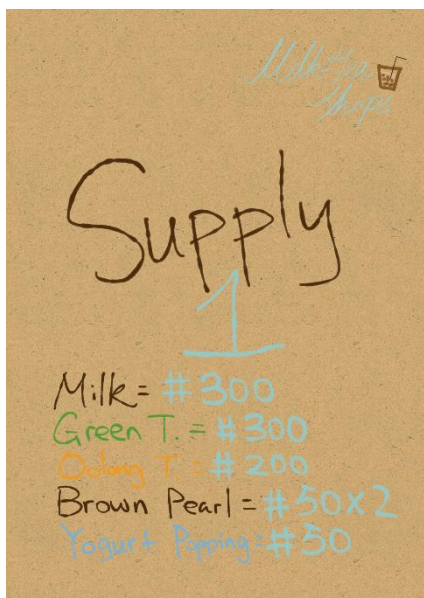 Milk Tea
Shops
Supply
1
Milk = #300
Green T. = #300
Oolong T = #200
Brown Pearl = #50x2
Yogurt Popping = #50